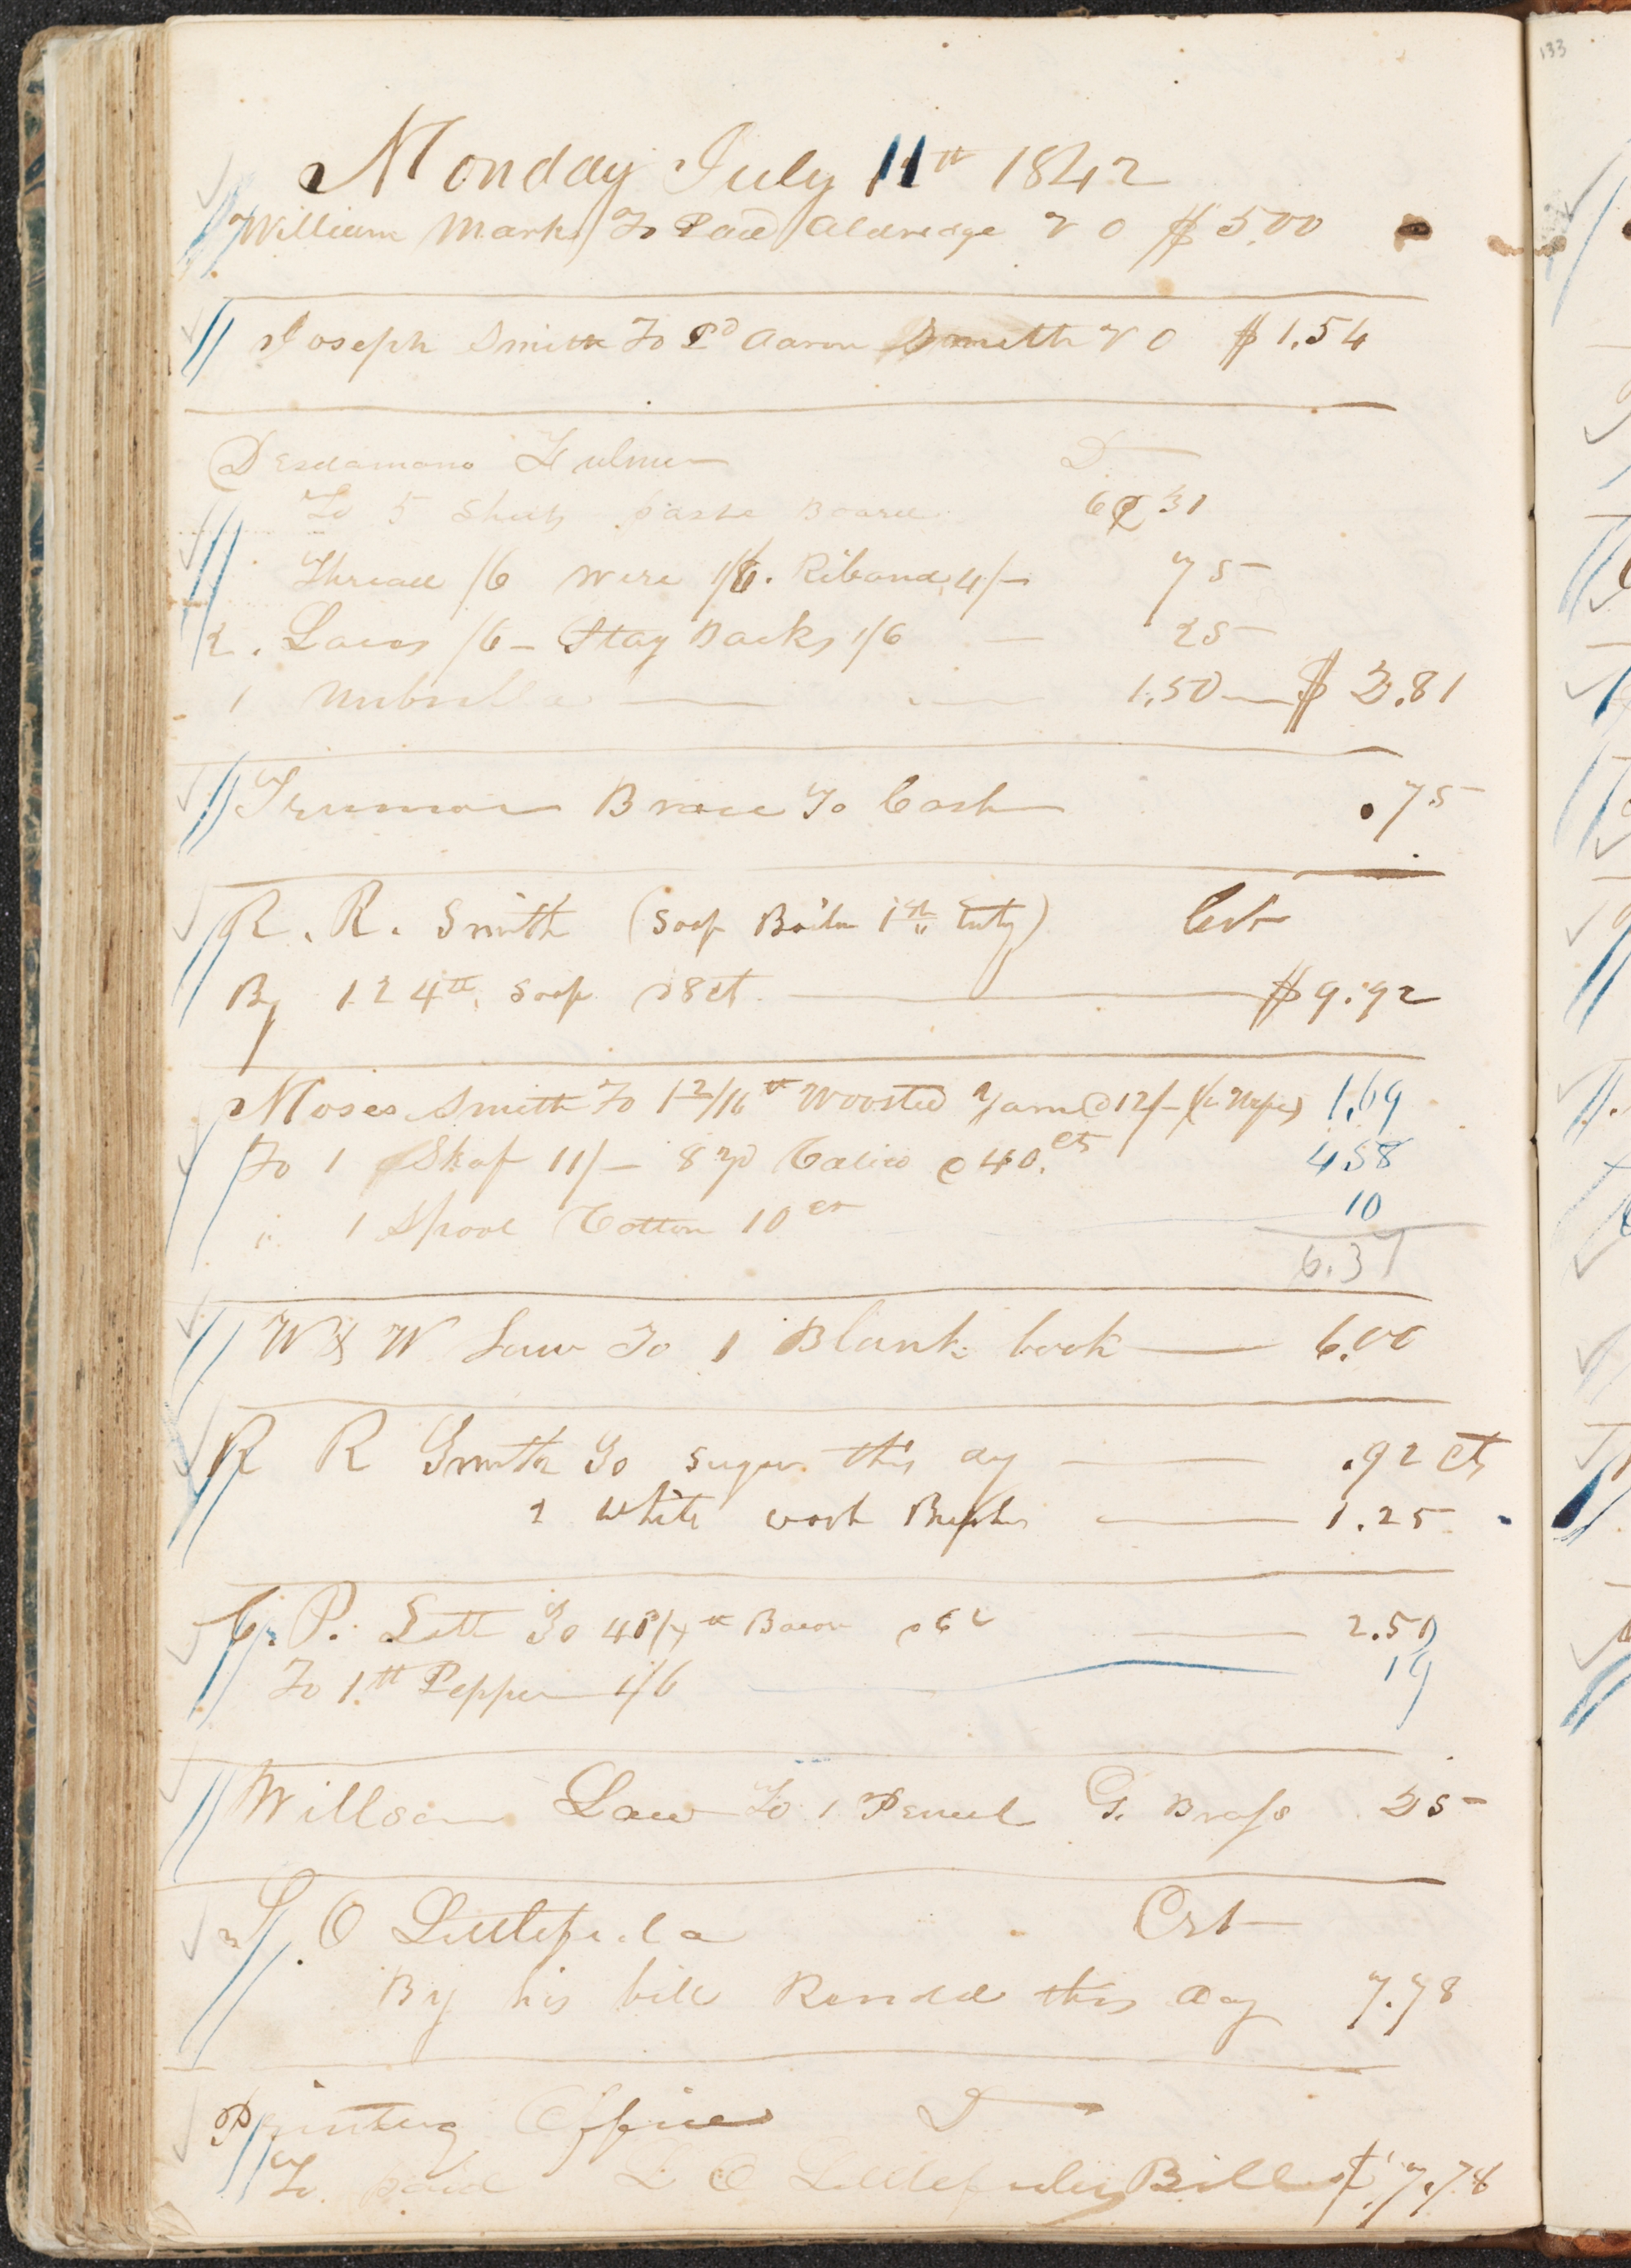 133
Monday July 11th 1842
William Marks To Paid Aldredge V O $ 5.00
Joseph Smith To Pd Aaron Smith V O $ 1.54
Desdamona Fulmer D
To 5 Sheets paste Board 6 31
Thread /6 Wire 1/6. Riband 4/- 75
2. Laces /6 - Stay Backs 1/6 — 25
1 Umbrilla — 1.50 — $ 2.81
Truman Brace To Cash .75
R. R. Smith (Soap Boiler 1st Enty) Cr
By 124 tt. Soap @ 8 ct. — $ 9.92
Moses Smith To 1 2/16 tt Woosted Yarn @ 12/- 1.69
To 1 Skaf 11/- 8 yd Calico @ 40. cts 4.58
" 1 Spool Cotton 10 ct 10
6.37
W & W Law To 1 Blank book — 6.00
R R Smith To sugar this dy — .92 cts
2 White wash Brushes — 1.25
C. P. Lott To 41 tt Bacon @ 6 c — 2.50
To 1 tt Pepper 1/6 — 19
William Law To 1 Pencil G. Brass 25
L. O Littlefield Crt
By his bill Rended this day 7.78
Printing Office D
To paid L O Littlefields Bill $ 7.78